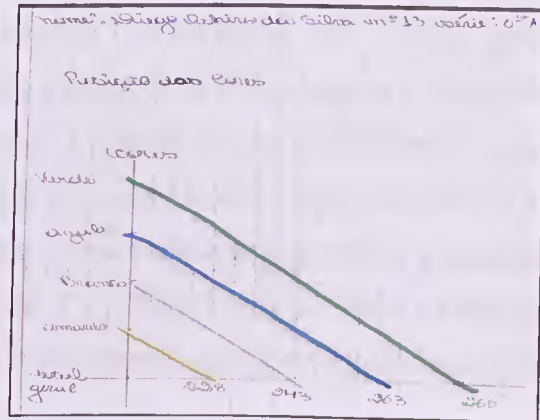 nome: Diego da Silva nº 13 série: 6ª A
Posição das Cores
cores
Verde
Azul
Branco
amarelo
total
geral
228 243 263 266